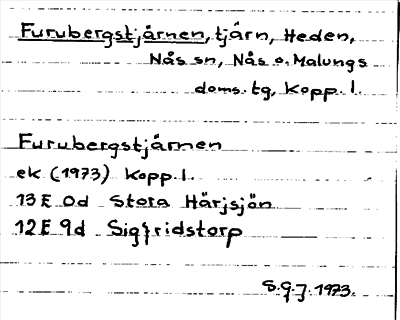 Furubergstjärnen, tjärn, Heden,
Nås sn, Nås o. Malungs
doms. tg, Kopp. l.
Furubergstjärnen
ek. (1973) Kopp. l.
13 E 0d Stora Härjsjön
12 E 9d Sigfridstorp
S.G.J. 1973.